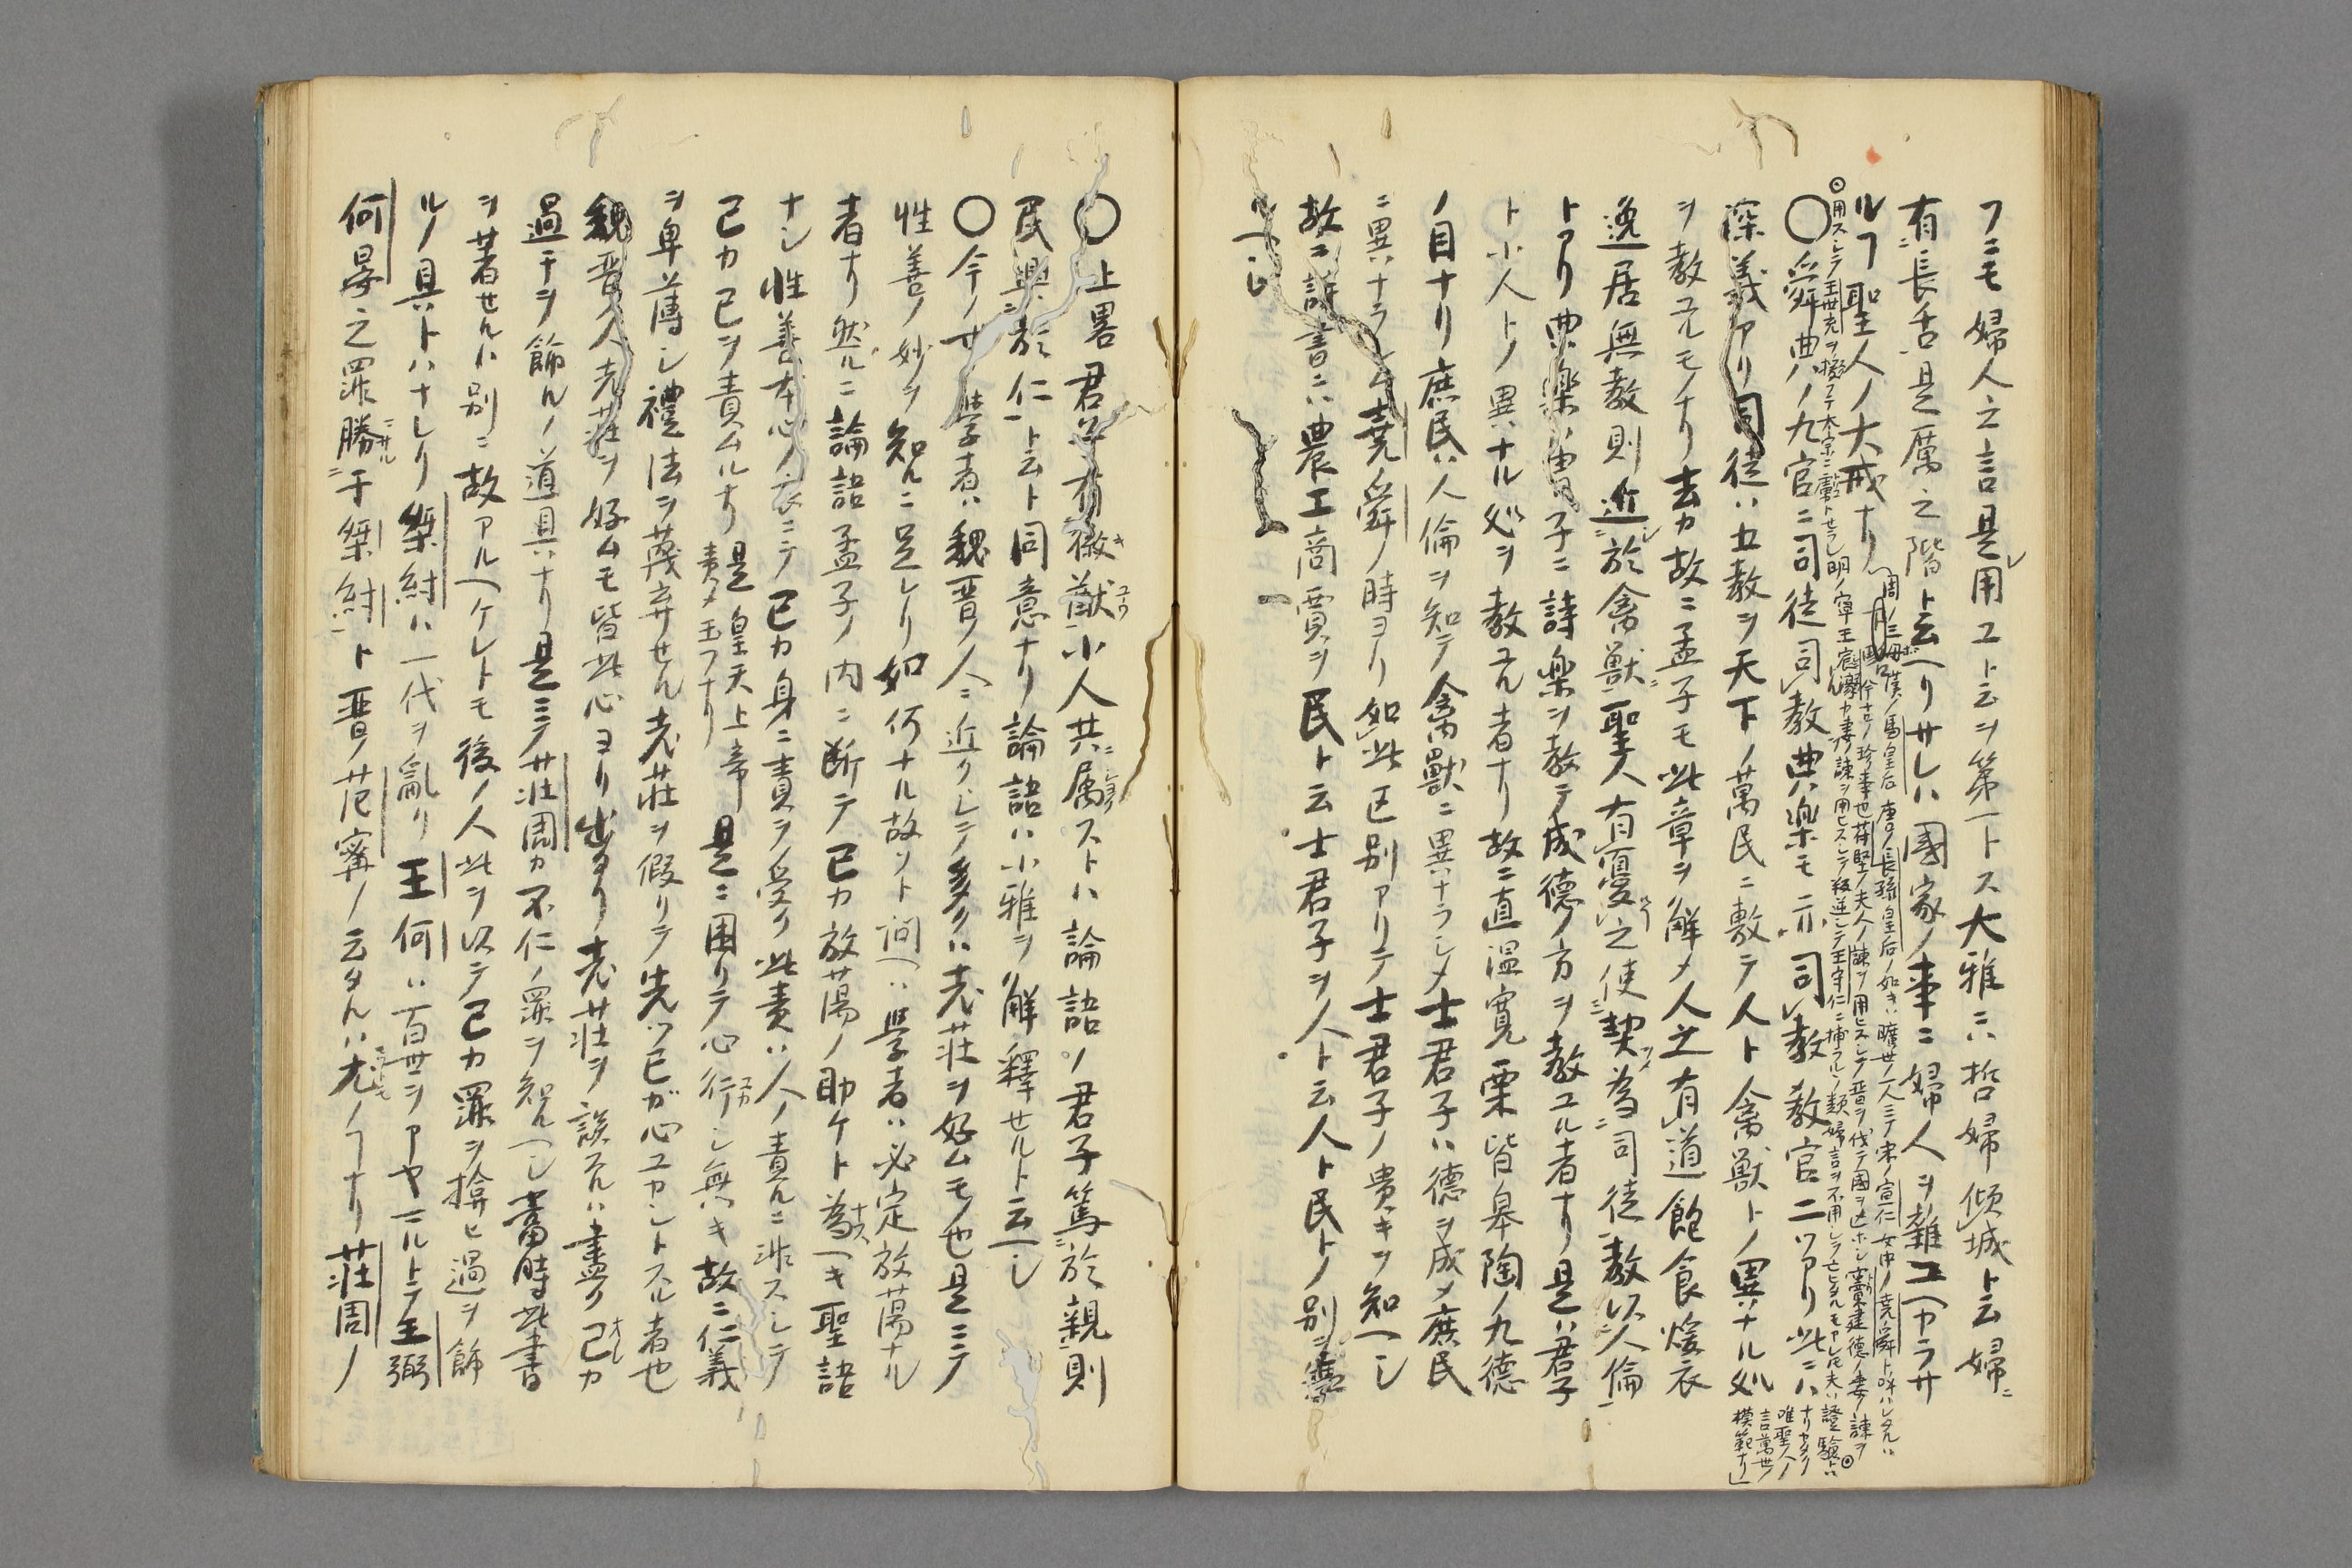 フニモ婦人之言是用ユト云ヲ第一トス大雅ニハ哲婦傾城ト云婦
有長舌是厲之階ト云ヘリサレハ國家ノ事ニ婦人ヲ雜ユヘカラサ
ルフ聖人ノ大戒ナリ
周ノ三母漢ノ馬皇后唐ノ長孫皇后ノ如キハ曠世ノ一人ニテ宋ノ宣仁女中ノ堯舜ト
符堅ノ夫人ノ諫ヲ用ヒスシテ晋ヲ伐テ國ヲ亡ホシ竇建徳ノ妻ノ諫ヲ
用スシテ王世充ヲ明ノ寧王宸濠カ妻ノ諫ヲ用ヒスシテ叛逆シテ王守仁ニ捕フルノ類婦言ヲ不用シテ
唯聖人ノ
言萬世ノ
模範ナリ
〇舜典ノ九官ニ司徒司教典樂モ亦司教教官二ツアリ此ニハ
深義アリ司徒ハ五教ヲ天下ノ萬民ニ敷テ人ト禽獣トノ異ナル処
ヲ教ユルモノナリ去カ故ニ孟子モ此章ヲ解メ人之有道飽食煖衣
逸居無教則近於禽獣聖人有憂之使契為司徒教以人倫
トアリ典樂ハ冑子ニ詩楽ヲ教テ成徳ノ方ヲ教ユル者ナリ是ハ君子
ト小人トノ異ナル処ヲ教ル者ナリ故ニ直温寛栗皆皐陶ノ九徳
ノ目ナリ庶民ハ人倫ヲ知テ禽獣ニ異ナラシメ士君子ハ徳ヲ成メ庶民
ニ異ナラシム堯舜ノ時ヨリ如此区別アリテ士君子ノ貴キヲ知ヘシ
故ニ詩書ニハ農工商賈ヲ民ト云士君子ヲ人ト云人ト民トノ別ヲ
ヘシ
〇上畧君子有徽猷小人共属ストハ論語ノ君子篤於親則
民興於仁ト云ト同意ナリ論語ハ小雅ヲ解釋セルト云ヘシ
〇今ノ世ノ學者ハ魏晋ノ人ニ近クシテ多クハ老荘ヲ好ムモ也是ニテ
性善ノ妙ヲ知ルニ足レリ如何ナル故ソト問ヘハ學者ハ必定放蕩ナル
者ナリ然ルニ論語孟子ノ内ニ断テ已カ放蕩ノ助ケト為ヘキ聖語
ナシ性善本心ノ衣ニテ已カ身ニ責ヲ受ク此責ハ人ノ責ルニ非スシテ
已カ已ヲ責ムルナリ是皇天上帝責メ玉フナリ是ニ困リテ心行シ無キ故ニ仁義
ヲ卑薄シ禮法ヲ蔑弃セル老荘ヲ假リテ先ツ已ガ心ユカントスル者也
魏晋ノ人老荘ヲ好ムモ皆此心ヨリ出タリ老荘ヲ談ルハ盡ク已カ
過チヲ飾ルノ道具ナリ是ニテ荘周カ不仁ノ罪ヲ知ルヘシ當時此書
ヲ著セルハ別ニ故アルヘケレトモ後ノ人此ヲ以テ已カ罪ヲ揜ヒ過ヲ飾
ルノ具トハナレリ桀紂ハ一代ヲ亂リ王何ハ百世ヲアヤマルトテ王弼
何晏之罪勝于桀紂ト晋ノ范寗ノ云タルハ尤ノフナリ荘周ノ